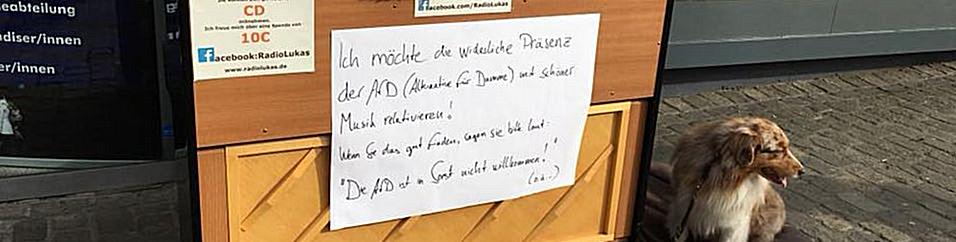 eabteilung
diser/innen
er/innen
CD
mitnehmen.
Ich freue mich über eine Spende von
10€
facebook:RadioLukas
www.radiolukas.de
facebook.com/RadioLukas
Ich möchte die widerliche Präsenz
der AfD (Alternative für Dumme) mit schöner
Musik relativieren!
Wenn Sie das gut finden, sagen sie bitte laut:
"Die AfD ist in Soest nicht willkommen!"
(o.ä..)